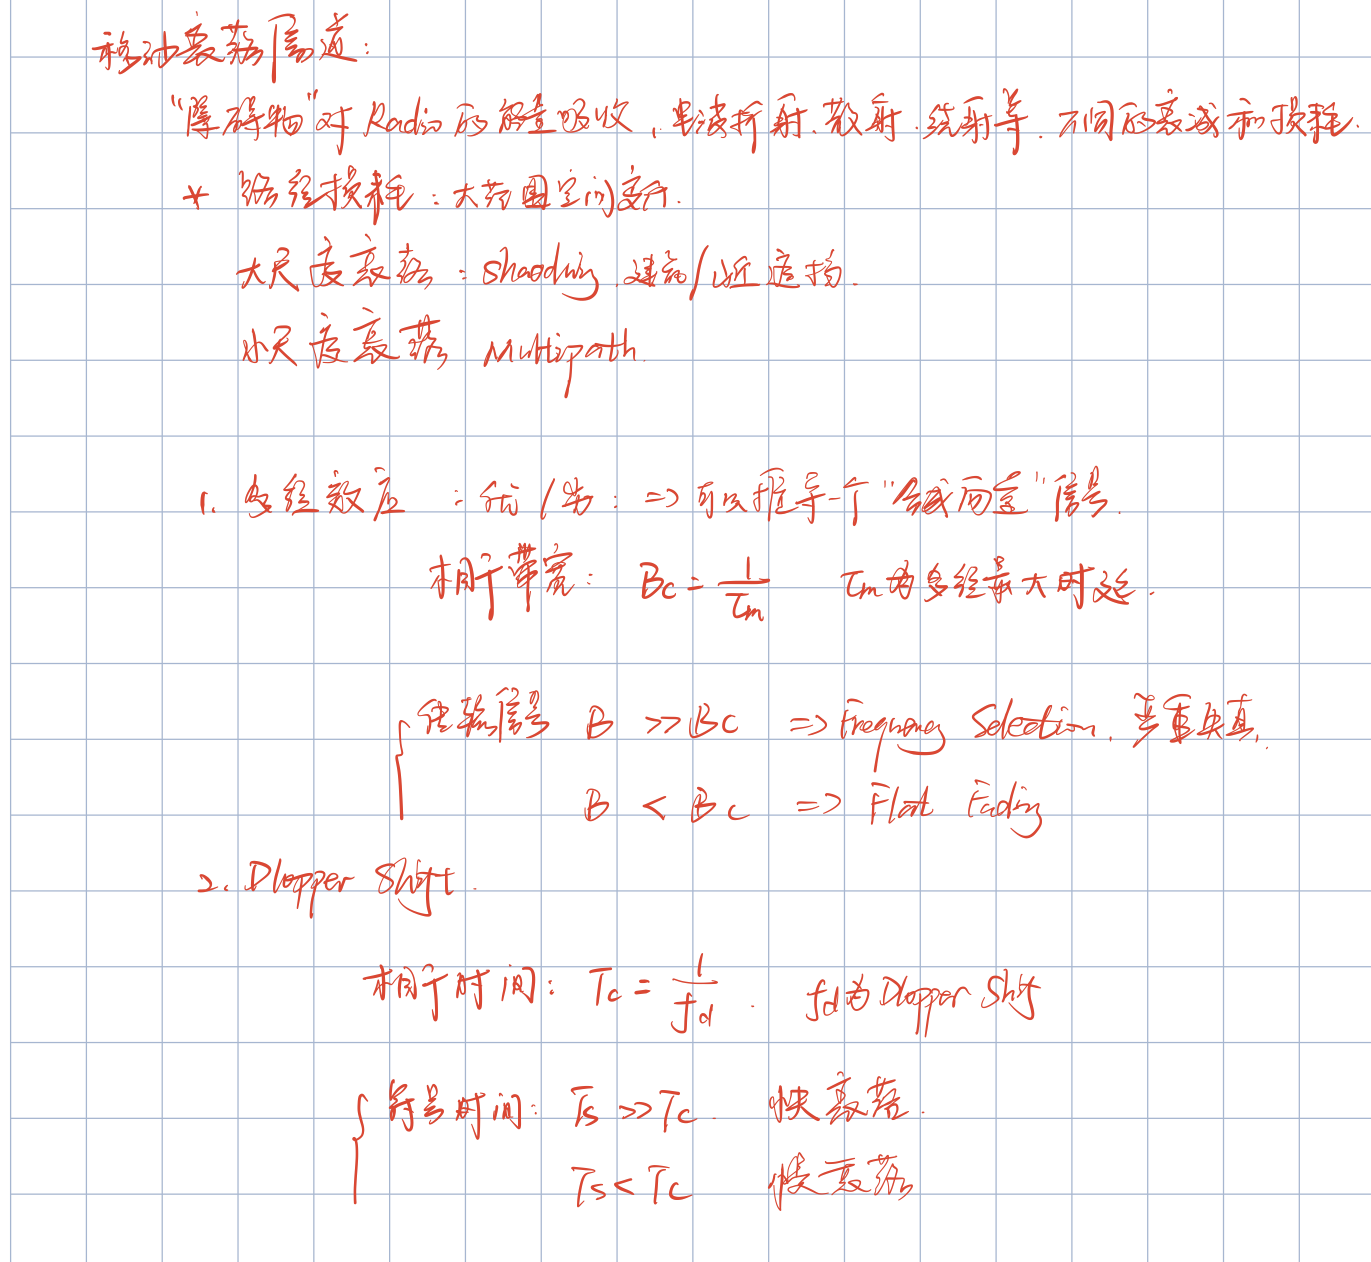 移动衰落信道：
"障碍物"对 Radio 的能量吸收，电波折射、散射、绕射等、不同的衰减和损耗.
* 路径损耗：大范围空间变化.
大尺度衰落：Shaodwing 建筑/山丘遮挡.
小尺度衰落 Multipath.
1. 多径效应 : 优/劣：=> 可以推导一个"合成信号.
相干带宽： Bc = 1/τm τm 为多径最大时延.
传输信号 B >> Bc => Frequency Selection, 严重失真.
B < Bc => Flat Fading
2. Dlopper Shift.
相干时间： Tc = 1/fd . fd为 Dlopper Shif
符号时间： Ts >> Tc. 快衰落.
Ts < Tc 慢衰落